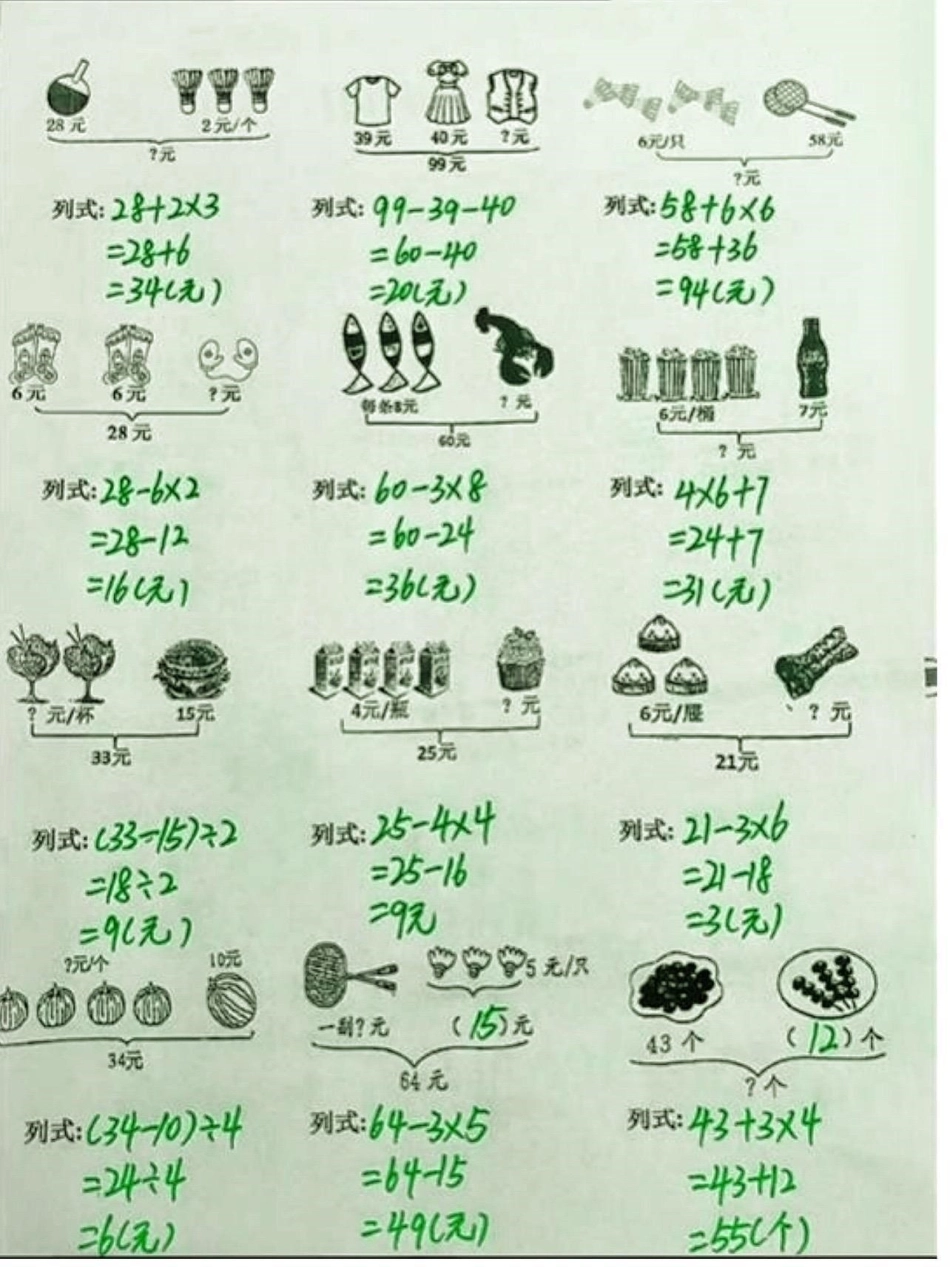 28元 2元/个
?元
39元 40元 ?元
99元
6元/只 58元
?元
列式:28+2×3
=28+6
=34(元)
列式:99-39-40
=60-40
=20(元)
列式:58+6×6
=58+36
=94(元)
6元 6元 ?元
28元
每条8元 ?元
60元
6元/桶 7元
?元
列式:28-6×2
=28-12
=16(元)
列式:60-3×8
=60-24
=36(元)
列式:4×6+7
=24+7
=31(元)
?元/杯 15元
33元
4元/瓶 ?元
25元
6元/屉 ?元
21元
列式:(33-15)÷2
=18÷2
=9(元)
列式:25-4×4
=25-16
=9元
列式:21-3×6
=21-18
=3(元)
?元/个 10元
34元
5元/只
一副?元 (15)元
64元
43个 (12)个
?个
列式:(34-10)÷4
=24÷4
=6(元)
列式:64-3×5
=64-15
=49(元)
列式:43+3×4
=43+12
=55(个)